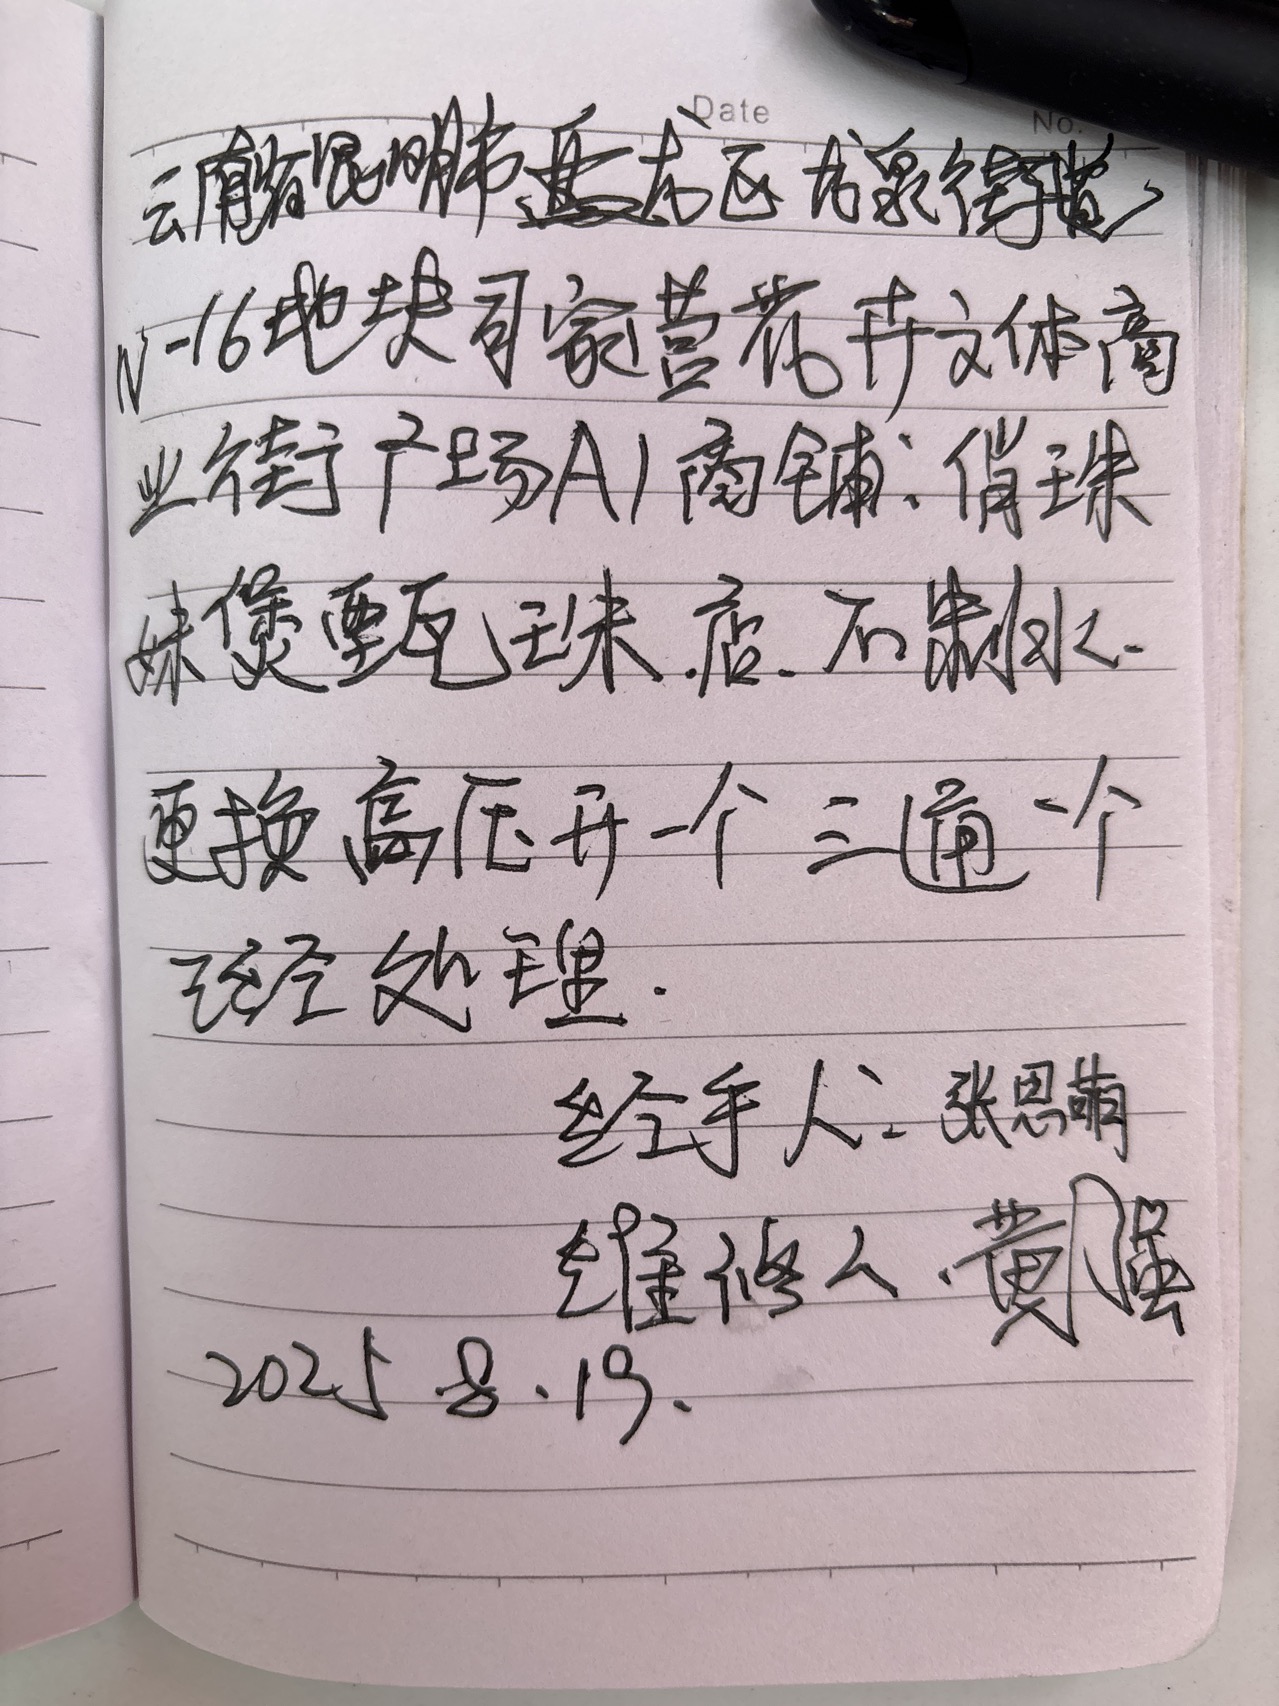 Date No.
云南省昆明市盘龙区龙泉街道
N-16地块司家营花卉文体商
业街广场A1商铺：俏珠
妹煲甄珠.店.不制水.
更换高压开一个三通一个
已经处理.
经手人：张思萌
维修人.黄强
2025 8.19.